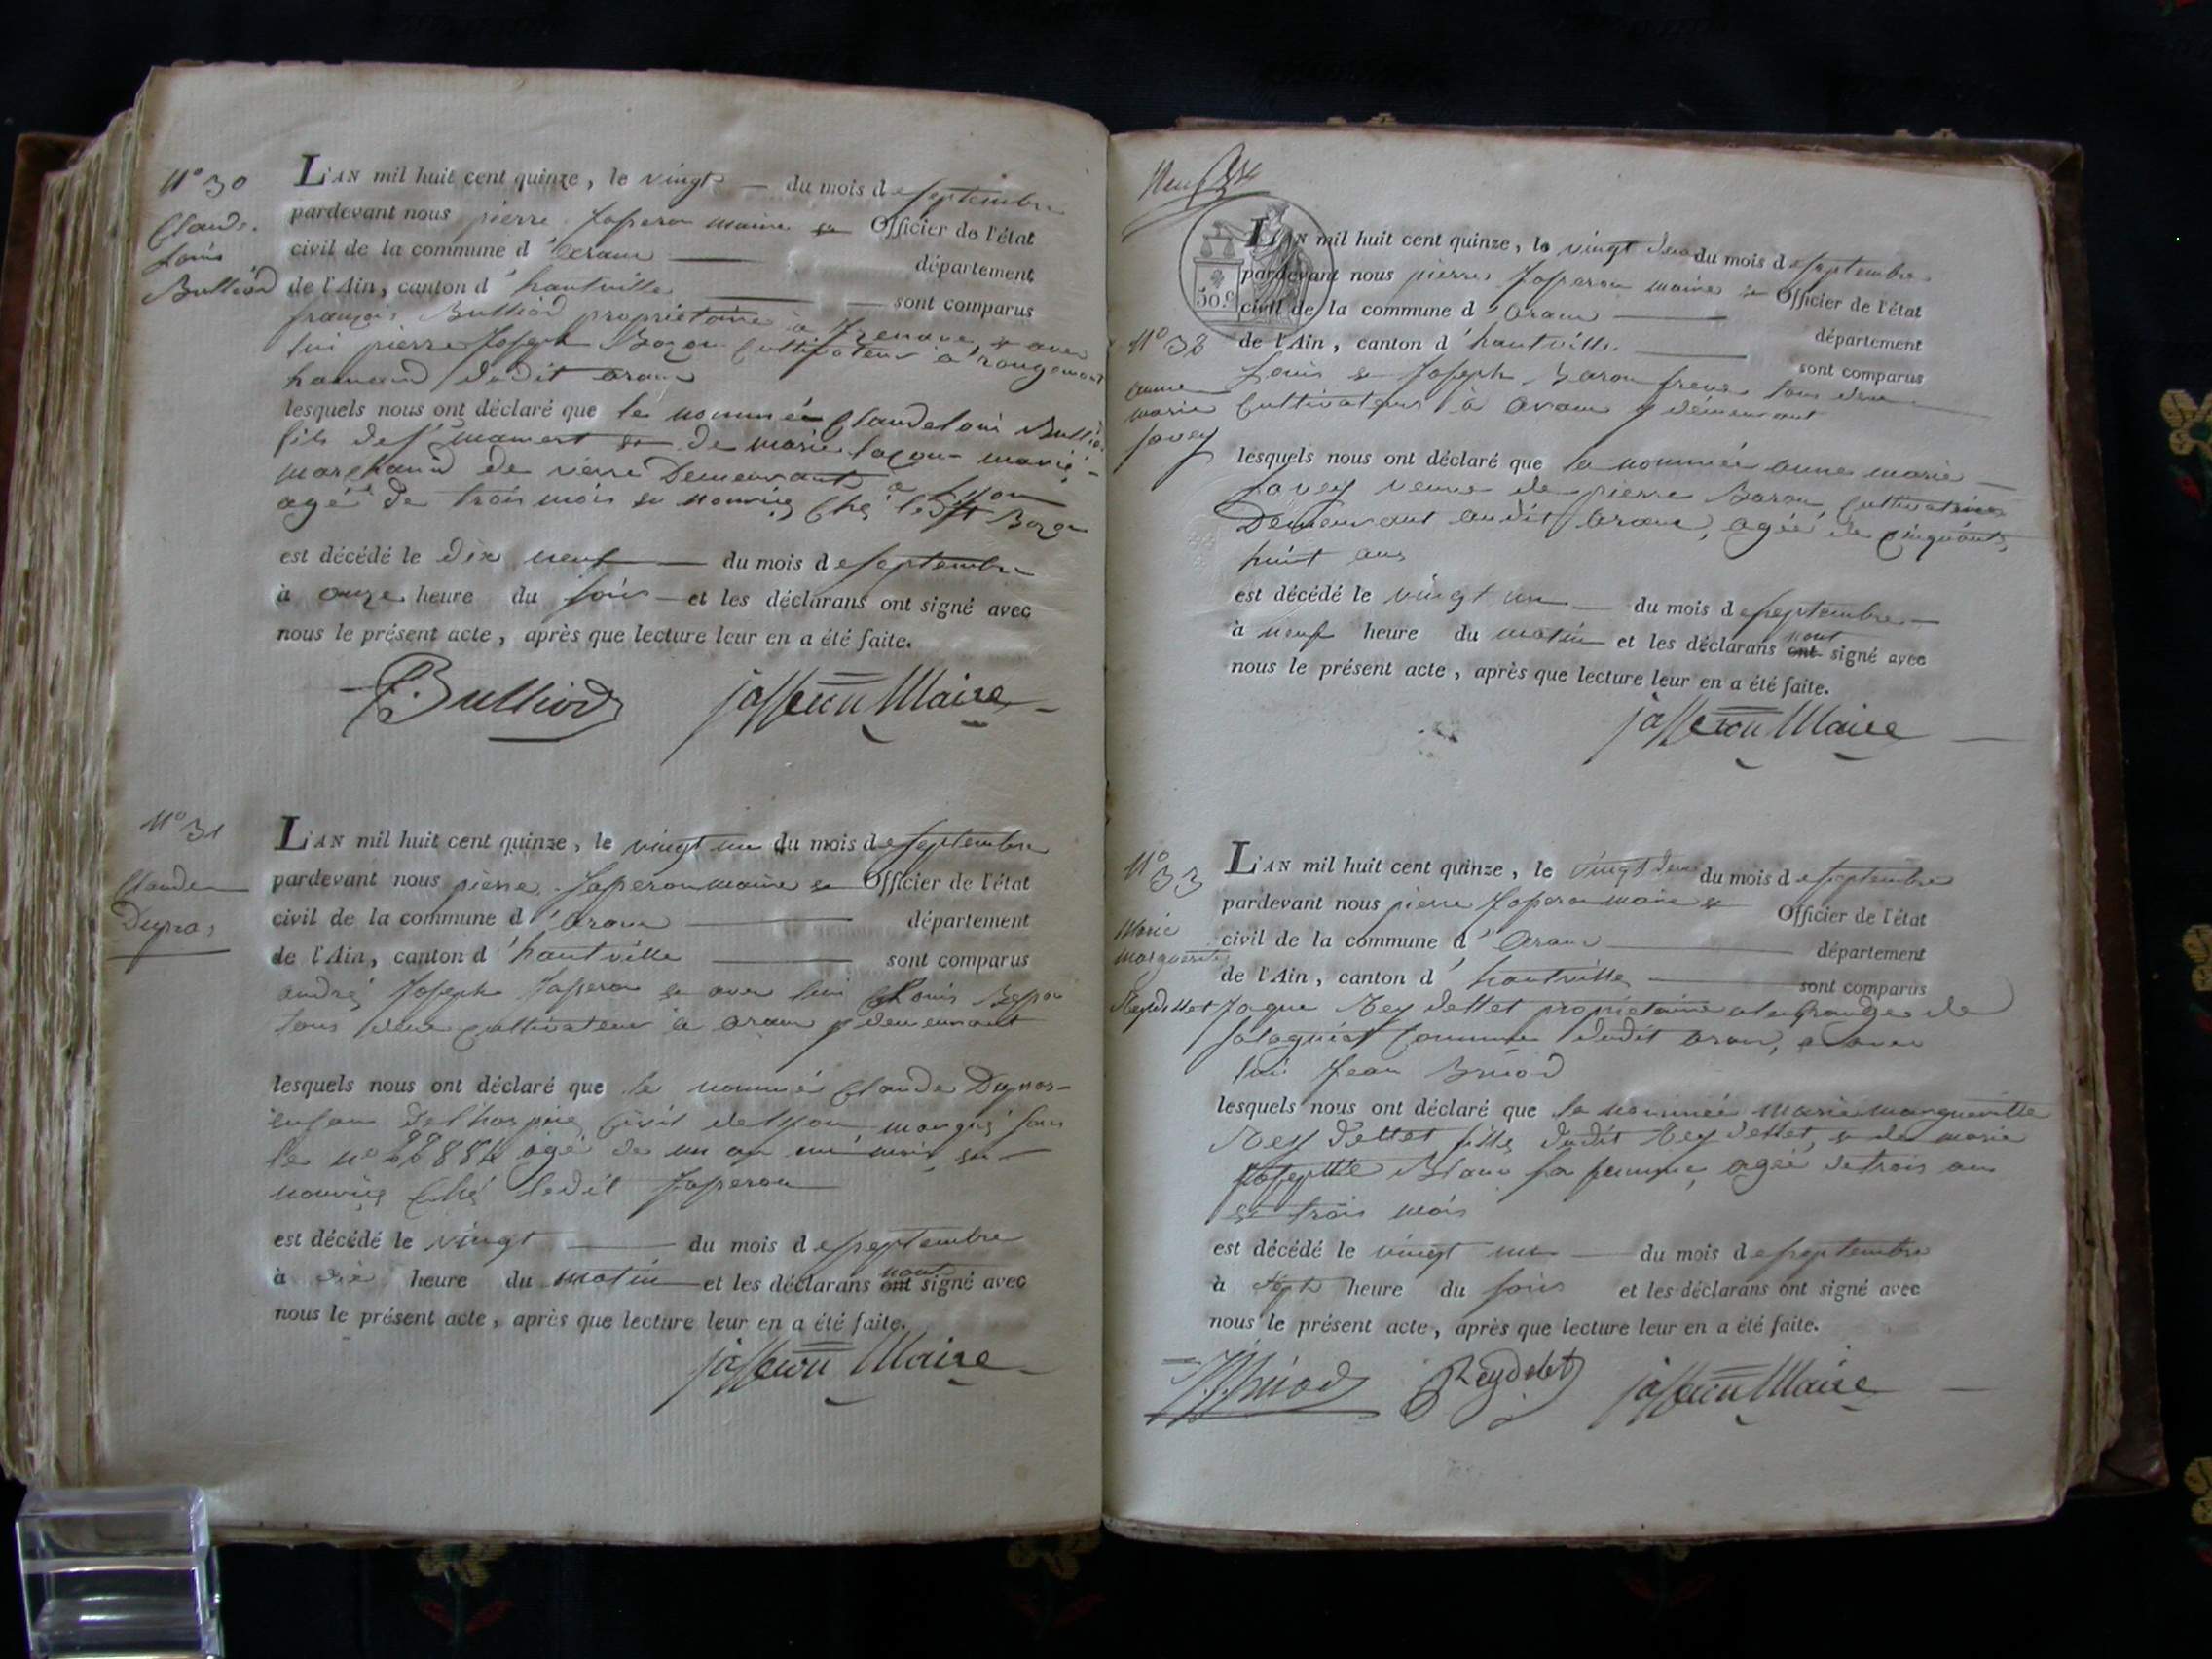 N° 30
Claude
Louis
Bulliod
L'AN mil huit cent quinze, le vingt — du mois de septembre
pardevant nous pierre Jasseron maire & Officier de l'état
civil de la commune d'aranc — département
de l'Ain, canton d'hautville — sont comparus
françois Bulliod propriétaire à & avec
lui pierre Joseph Bozon Cultivateur a rougemont
hameau dudit aranc
lesquels nous ont déclaré que le nommée Claude Louis Bulliod
fils de mamert & de marie marié
marchand de verre Demeurant à Lyon
agé de trois mois en nourrice ché ledit Bozon
est décédé le dix neuf — du mois de septembre
à onze heure du soir — et les déclarans ont signé avec
nous le présent acte, après que lecture leur en a été faite.
Bulliod jasseron Maire
N° 31
Claude
Dupras
L'AN mil huit cent quinze, le vingt un du mois de septembre
pardevant nous pierre Jasseron maire & Officier de l'état
civil de la commune d'aranc — département
de l'Ain, canton d'hautville — sont comparus
andré Joseph Jasseron & avec lui Louis
tous deux cultivateur à aranc y demeurant
lesquels nous ont déclaré que le nommé Claude Dupras
enfan de l'hospice Civil de Lyon, marqué sous
le n° agé de un an un mois, en
nourrice ché ledit Jasseron
est décédé le vingt — du mois de septembre
à dix heure du matin — et les déclarans ont nont signé avec
nous le présent acte, après que lecture leur en a été faite.
jasseron Maire
50 c.
N° 32
anne
marie
Javey
L'AN mil huit cent quinze, le vingt deux du mois de septembre
pardevant nous pierre Jasseron maire & Officier de l'état
civil de la commune d'aranc — département
de l'Ain, canton d'hautville — sont comparus
Louis & Joseph Baron freres tous deux
Cultivateurs à aranc y démeurant
lesquels nous ont déclaré que la nommée anne marie
Javey veuve de pierre Baron Cultivatrice
Demeurant audit aranc, agée de cinquante
huit ans
est décédé le vingt un — du mois de septembre
à neuf heure du matin et les déclarans ont nont signé avec
nous le présent acte, après que lecture leur en a été faite.
jasseron Maire
N° 33
Marie
marguerite
Reydellet
L'AN mil huit cent quinze, le vingt deux du mois de septembre
pardevant nous pierre Jasseron maire & Officier de l'état
civil de la commune d'aranc — département
de l'Ain, canton d'hautville — sont comparus
Jaque Reydellet propriétaire a la grange de
Commune dudit aranc, & avec
lui Jean Briod
lesquels nous ont déclaré que la nommée marie marguerite
Reydellet fille dudit Reydellet, & de marie
Josephte Blanc sa femme, agée de trois ans
et trois mois
est décédé le vingt un — du mois de septembre
à sept heure du soir et les déclarans ont signé avec
nous le présent acte, après que lecture leur en a été faite.
Briod Reydelet jasseron Maire